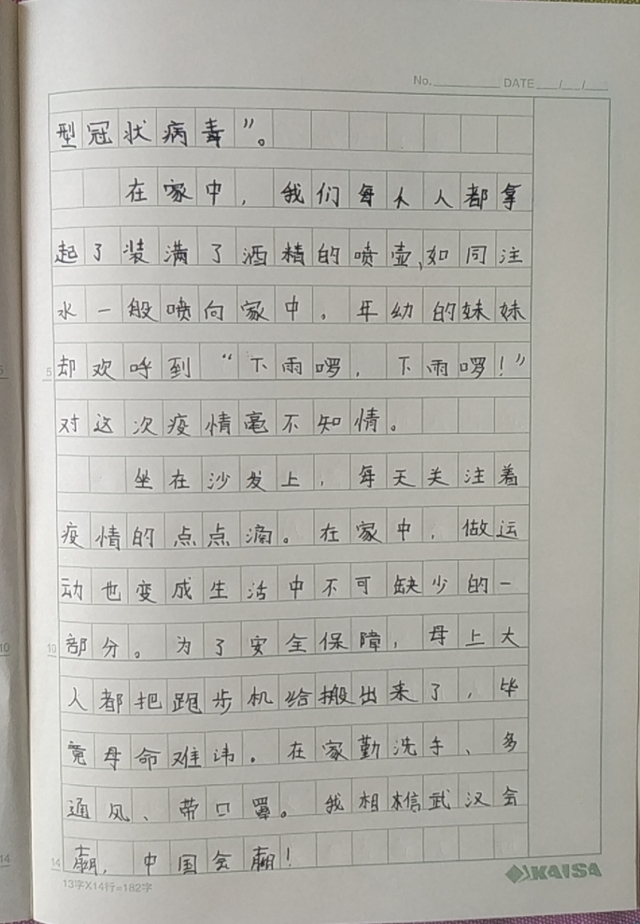 No. DATE / /
型冠状病毒”。
在家中，我们每个人都拿
起了装满了酒精的喷壶,如同注
水一般喷向家中。年幼的妹妹
5 却欢呼到“下雨啰，下雨啰!”
对这次疫情毫不知情。
坐在沙发上，每天关注着
疫情的点点滴。在家中，做运
动也变成生活中不可缺少的一
10 部分。为了安全保障，母上大
人都把跑步机给搬出来了，毕
竟母命难讳。在家勤洗手、多
通风、带口罩。我相信武汉会
14 赢，中国会赢!
13字X14行=182字
KAISA